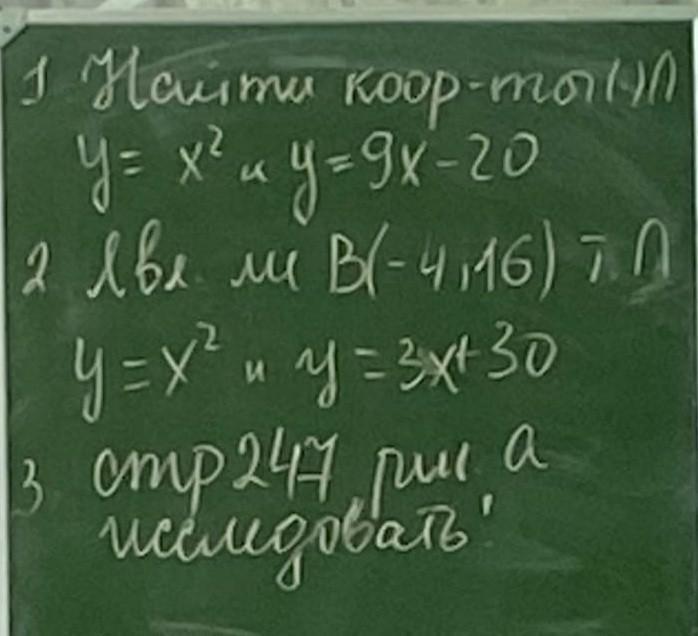 1 Найти коор-ты (·) ∩
y = x² и y = 9x - 20
2 Явл ли B(-4; 16) т ∩
y = x² и y = 3x + 30
3 стр 247, рис а
исследовать!